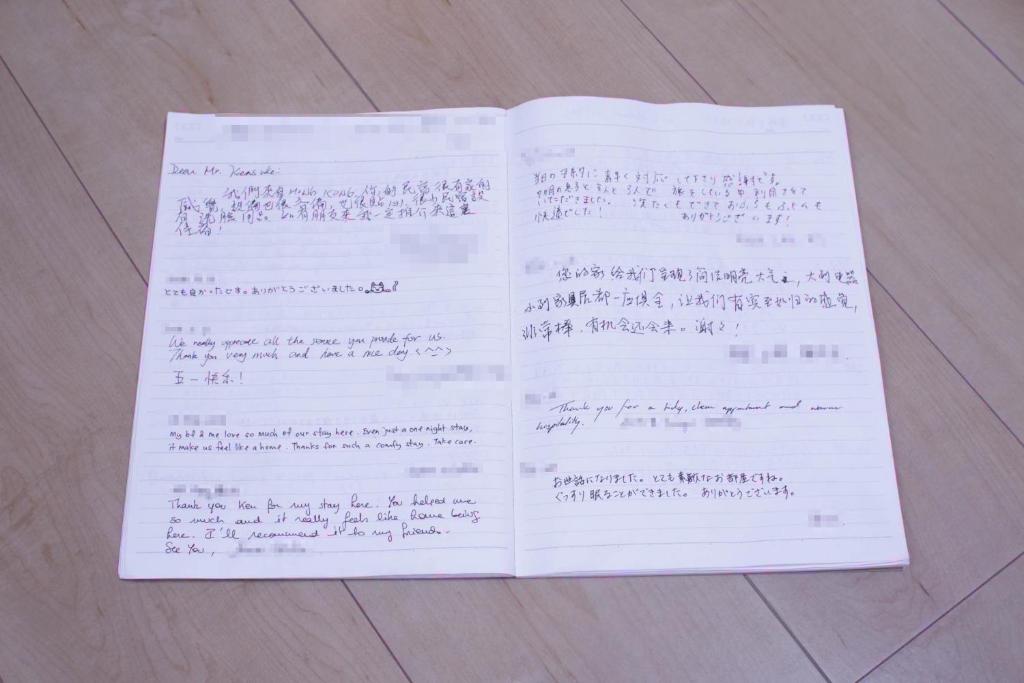 Dear Mr. Kensuke.
我們來自HONG KONG, 你的民宿很有家的
感覺, 設備也很齊備, 也很貼心, 很少民宿設
有洗臉用品. 如有朋友來我一定推介來這裏
住宿!
とても良かったです。ありがとうございました。
We really appreciate all the service you provide for us.
Thank you very much and have a nice day <^_^>
五一快乐!
My bf & me love so much of our stay here. Even just a one night stay,
it make us feel like a home. Thanks for such a comfy stay. Take care.
Thank you Ken for my stay here. You helped me
so much and it really feels like home being
here. I'll recommend it to my friends.
See You,
当日の予約に素早く対応して下さり感謝です。
旅をしている中利用させて
いただきました。洗たくもできておふろもふとんも
快適でした! ありがとうございます!
您的家给我们呈现了简洁明亮大气,大到电器
小到家具居都一应俱全,让我们有宾至如归的感觉,
非常棒,有机会还会来。谢々!
Thank you for a tidy, clean appartment and warm
hospitality.
お世話になりました。とても素敵なお部屋ですね。
ぐっすり眠ることができました。ありがとうございます。